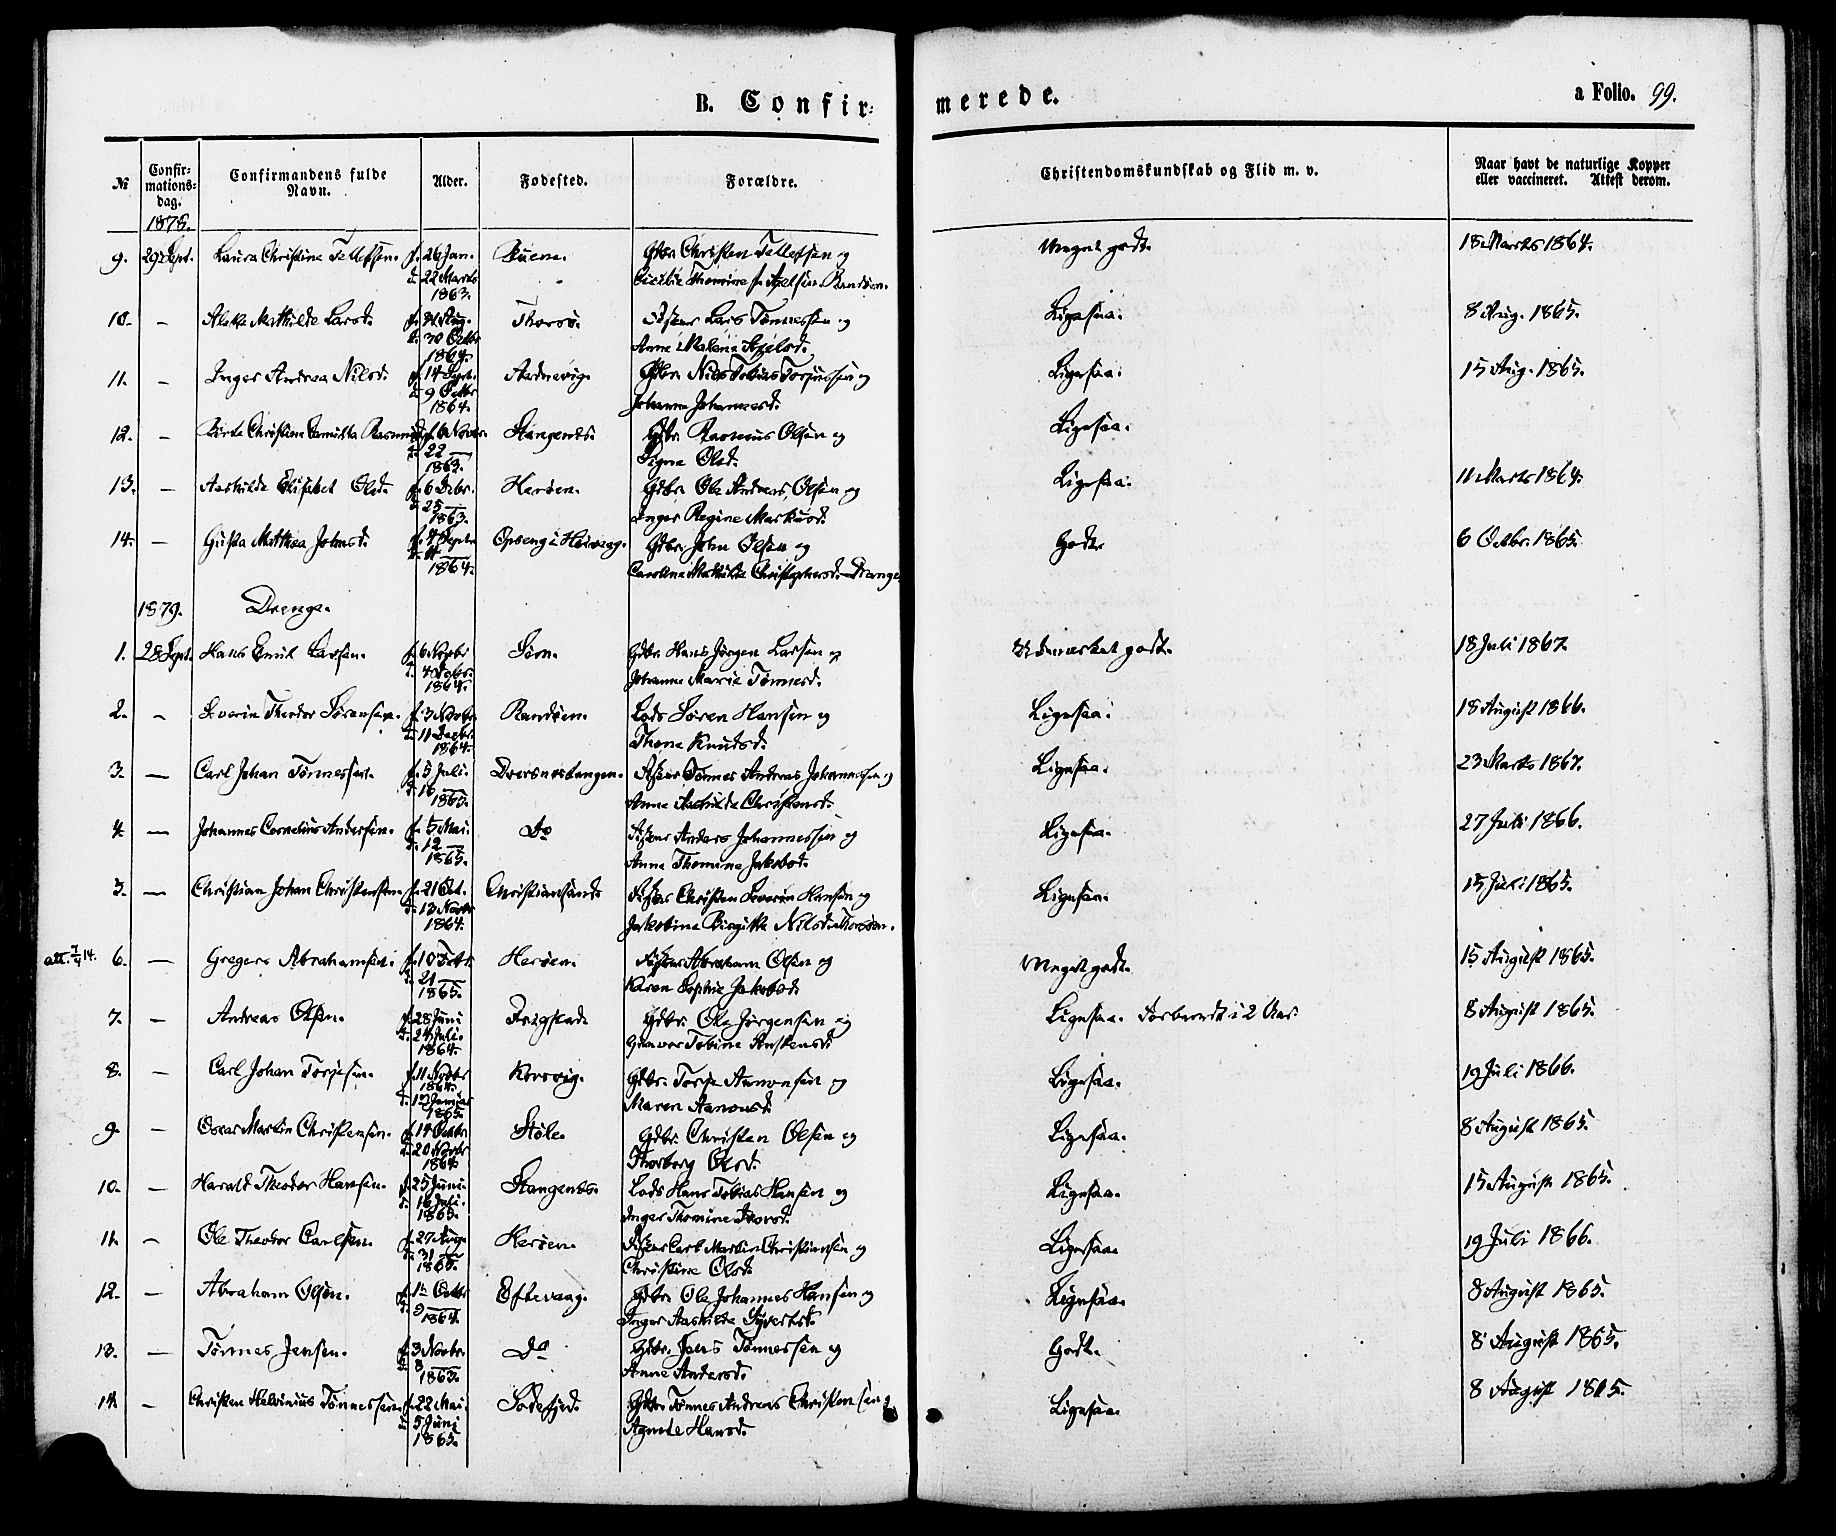 B. Confir- merede. a Folio. 99.
№ Confir-mations-dag. Confirmandens fulde Navn. Alder. Fødested. Forældre. Christendomskundskab og Flid m. v. Naar havt de naturlige Kopper eller vaccineret. Attest derom.
1878.
9. 29 Sept. Laura Christine Tellefsen. f. 26 Jan. Gdbr. Christen Tellefsen og Meget godt. 18 Marts 1864.
d. 22 Marts Cecilie Thomine f. Axelsen. Randøen.
1863.
10. — Alette Mathilde Larsd. Thorsø. Lars Tønnessen og Ligesaa. 8 Aug. 1865.
d. 30 Octbr Anne Malene Axelsd.
1864.
11. — Inger Andrea Nilsd. f. 14 Sept. Aadnevig. Gdbr. Nils Tobias Torjussen og Ligesaa. 15 Aug. 1865.
d. 9 Octbr Johanne Johannesd.
1864.
12. — Christine Rasmusd. f. 6 Novbr. Stangenes. Gdbr. Rasmus Olsen og Ligesaa.
d. 22 — Signe Olsd.
1863.
13. — Aashilde Elisabet Olsd. f. 6 Debr. Herøen. Gdbr. Ole Andreas Olsen og Ligesaa. 11 Marts 1864.
d. 25 — Inger Regine Markusd.
1863.
14. — Gusta Mathea Johnsd. Gdbr. John Olsen og Godt. 6 Octbr. 1865.
1864. Caroline Mathilde Christophersd. Drange
1879. Drenge.
1. 28 Sept. Hans Emil Larsen. f. 6 Novbr Søm. Gdbr. Hans Jørgen Larsen og Udmærket godt. 18 Juli 1867.
Johanne Marie Tønnesd.
1864.
2. — Severin Theodor Sørensen. f. 3 Novbr. Randøen. Lods Søren Hansen og Ligesaa. 18 August 1866.
d. 11 Decbr. Thone Knudsd.
1864.
3. — Carl Johan Tønnessen. f. 5 Juli. Dversnestangen. Tønnes Andreas Johannessen og Ligesaa. 23 Marts 1867.
d. 16 — Anne Aashilde Christensd.
1865.
4. — Johannes Cornelius Andersen. f. 5 Mai. Do Anders Johannessen og Ligesaa. 27 Juli 1866.
d. 12 — Anne Thomine Jakobsd.
1865.
5. — Christian Johan Christensen. f. 21 Oct. Christiansand. Christen Severin Hansen og Ligesaa. 15 Juli 1865.
d. 13 Novbr Jakobine Birgitte Nilsd.
1864.
att. 7/4 14. 6. — Gregers Abrahamsen. f. 10 Febr. Herøen. Abraham Olsen og Meget godt. 15 August 1865.
d. 21 — Karen Sophie Jakobsd.
1865.
7. — Andreas Olsen. f. 28 Juni Frigstad. Gdbr. Ole Jørgensen og Ligesaa. Forberedt i 2 Aar. 8 August 1865.
d. 24 Juli. Gunvor Tobine Anstensd.
1864.
8. — Carl Johan Torjesen. f. 11 Novbr Korsvig. Gdbr. Torje Aanonsen og Ligesaa. 19 Juli 1866.
1864. Maren Aanonsd.
d. Januar
1865.
9. — Oscar Martin Christensen. f. 14 Octbr. Støle. Gdbr. Christen Olsen og Ligesaa. 8 August 1865.
d. 20 Novbr Thorborg Olsd.
1864
10. — Harald Theodor Hansen. f. 25 Juni. Stangenes. Lods Hans Tobias Hansen og Ligesaa. 15 August 1865.
d. 16 Juli. Inger Thomine
1865.
11. — Ole Theodor Carlsen. f. 27 Aug. Herøen. Carl Martin Christiansen og Ligesaa. 19 Juli 1866.
d. 31 — Christine Olsd.
1865.
12. — Abraham Olsen. f. 1 Octbr Eftevaag. Gdbr. Ole Johannes Hansen og Ligesaa. 8 August 1865.
d. 9 — Inger Aashilde Syvertsd.
1864.
13. — Tønnes Jensen. f. 3 Novbr. Do Gdbr. Jens Tønnessen og Godt. 8 August 1865.
d. 8 — Anne Andersd.
1863.
14 — Christen Helvinius Tønnessen. f. 22 Mai. Gdbr. Tønnes Andreas Christensen og Ligesaa. 8 August 1865.
d. 5 Juni Agnete Hansd.
1865.